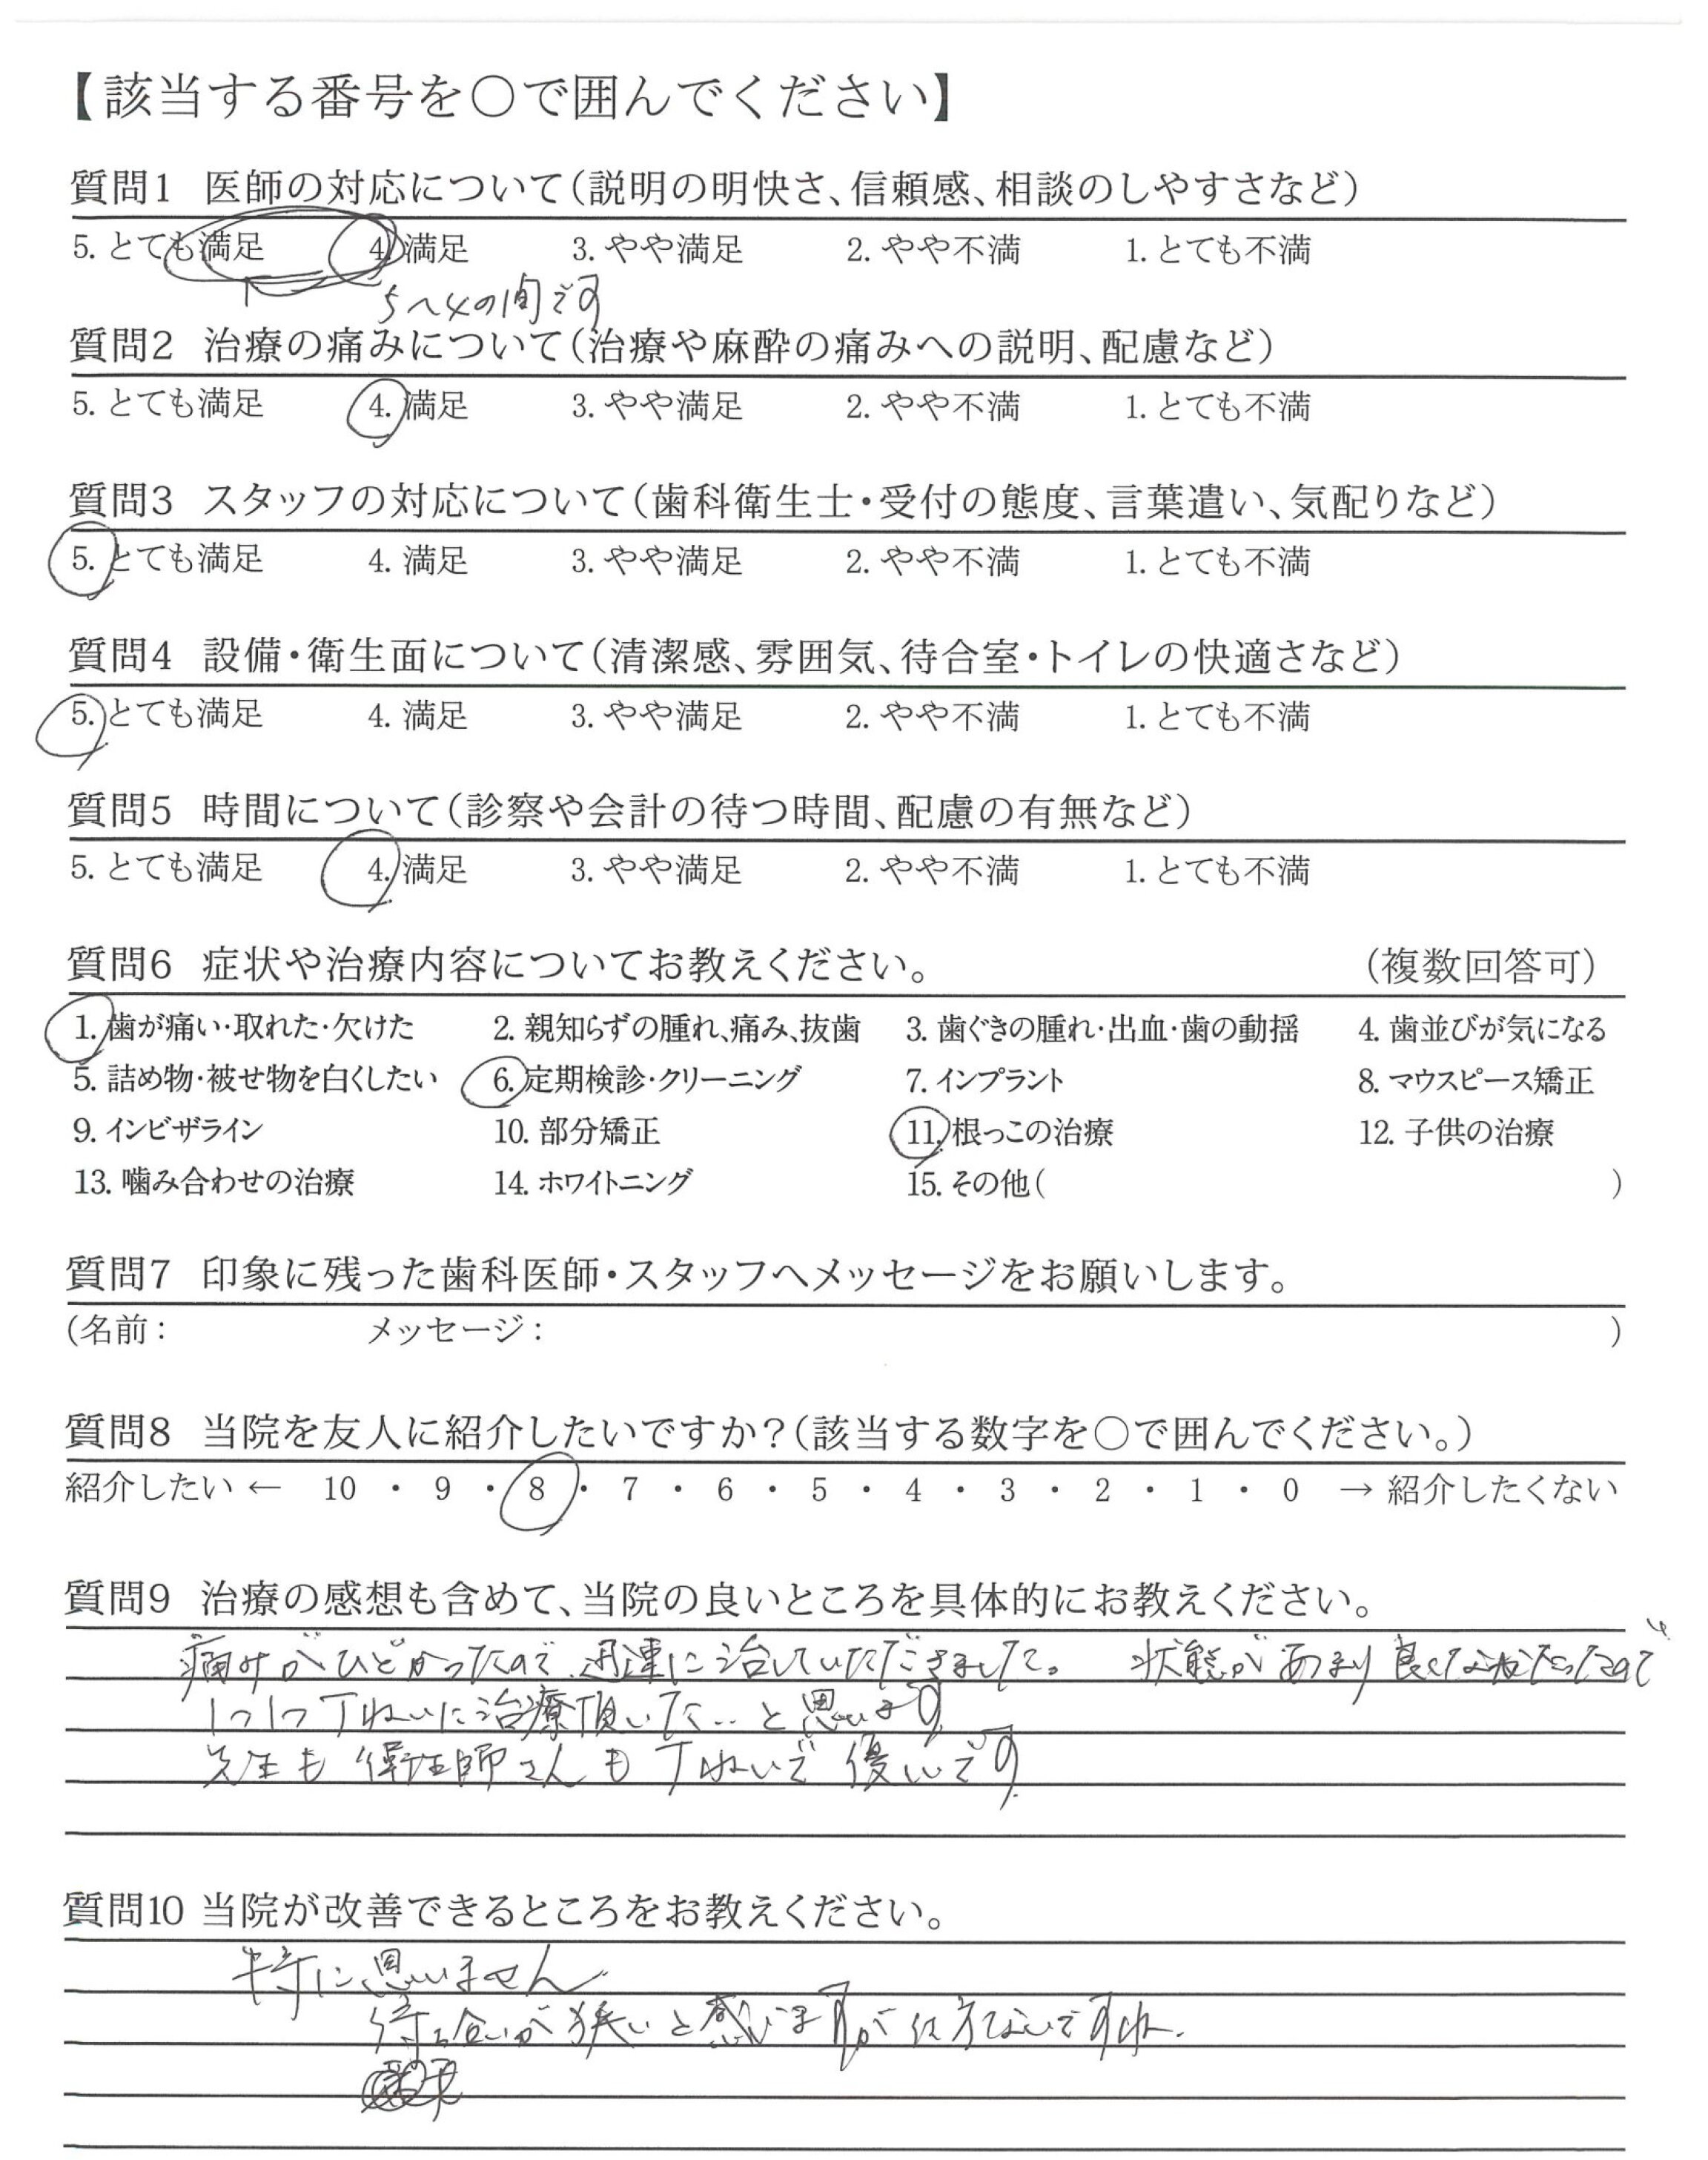 【該当する番号を〇で囲んでください】
質問1 医師の対応について(説明の明快さ、信頼感、相談のしやすさなど)
5. とても満足 4. 満足 3. やや満足 2. やや不満 1. とても不満
5へ4の間です
質問2 治療の痛みについて(治療や麻酔の痛みへの説明、配慮など)
5. とても満足 4. 満足 3. やや満足 2. やや不満 1. とても不満
質問3 スタッフの対応について(歯科衛生士・受付の態度、言葉遣い、気配りなど)
5. とても満足 4. 満足 3. やや満足 2. やや不満 1. とても不満
質問4 設備・衛生面について(清潔感、雰囲気、待合室・トイレの快適さなど)
5. とても満足 4. 満足 3. やや満足 2. やや不満 1. とても不満
質問5 時間について(診察や会計の待つ時間、配慮の有無など)
5. とても満足 4. 満足 3. やや満足 2. やや不満 1. とても不満
質問6 症状や治療内容についてお教えください。 (複数回答可)
1. 歯が痛い・取れた・欠けた 2. 親知らずの腫れ、痛み、抜歯 3. 歯ぐきの腫れ・出血・歯の動揺 4. 歯並びが気になる
5. 詰め物・被せ物を白くしたい 6. 定期検診・クリーニング 7. インプラント 8. マウスピース矯正
9. インビザライン 10. 部分矯正 11. 根っこの治療 12. 子供の治療
13. 噛み合わせの治療 14. ホワイトニング 15. その他( )
質問7 印象に残った歯科医師・スタッフへメッセージをお願いします。
(名前: メッセージ: )
質問8 当院を友人に紹介したいですか?(該当する数字を〇で囲んでください。)
紹介したい ← 10 ・ 9 ・ 8 ・ 7 ・ 6 ・ 5 ・ 4 ・ 3 ・ 2 ・ 1 ・ 0 → 紹介したくない
質問9 治療の感想も含めて、当院の良いところを具体的にお教えください。
痛みがひどかったので、迅速に治していただきました。 状態があまり良くなかったので
1つ1つ丁ねいに治療頂いた… と思います
先生も 衛生師さんも 丁ねいで 優しいです
質問10 当院が改善できるところをお教えください。
特に思いません
待ち合いが狭いと感じますが仕方ないですね.